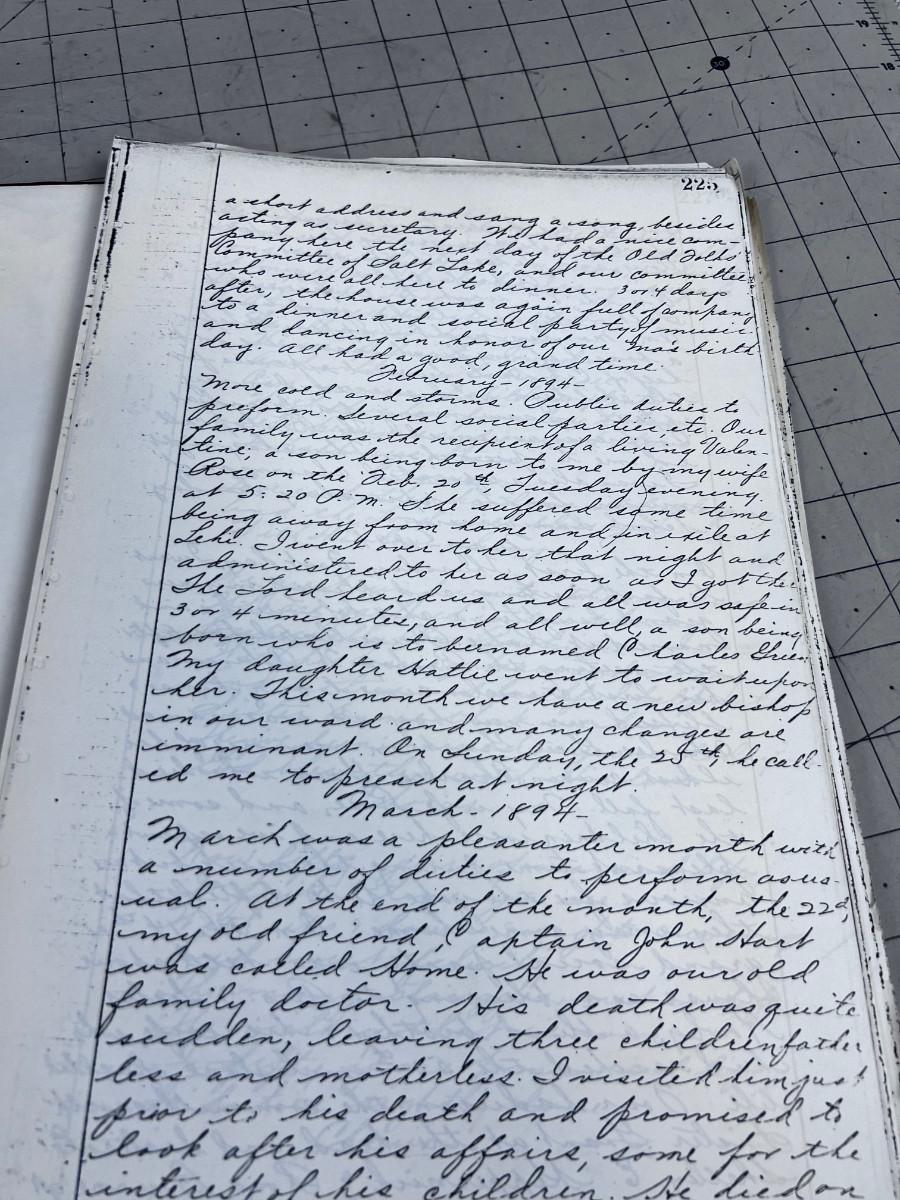 225
a short address and sang a song, besides
acting as secretary. We had a nice com-
pany here the next day of the Old Folks'
Committee of Salt Lake, and our committee
who were all here to dinner. 3 or 4 days
after, the house was again full of company
to a dinner and social party of music
and dancing in honor of our Ma's birth
day. All had a good, grand time.
February - 1894 -
More cold and storms. Public duties to
preform. Several social parties, etc. Our
family was the recipient of a living Valen-
tine, a son being born to me by my wife
Rose on the Feb. 20th, Tuesday evening
at 5:20 P.M. She suffered some time
being away from home and in exile at
Lehi. I went over to her that night and
administered to her as soon as I got ther
The Lord heard us and all was safe in
3 or 4 minutes, and all well, a son being
born who is to be named Charles
My daughter Hattie went to wait upon
her. This month we have a new bishop
in our ward and many changes are
imminant. On Sunday, the 25th, he call-
ed me to preach at night.
March - 1894 -
March was a pleasanter month with
a number of duties to perform as us-
ual. At the end of the month, the 22d,
my old friend, Captain John Hart
was called Home. He was our old
family doctor. His death was quite
sudden, leaving three children father
less and motherless. I visited him just
prior to his death and promised to
look after his affairs, some for the
interest of his children. He died on
19
18
30